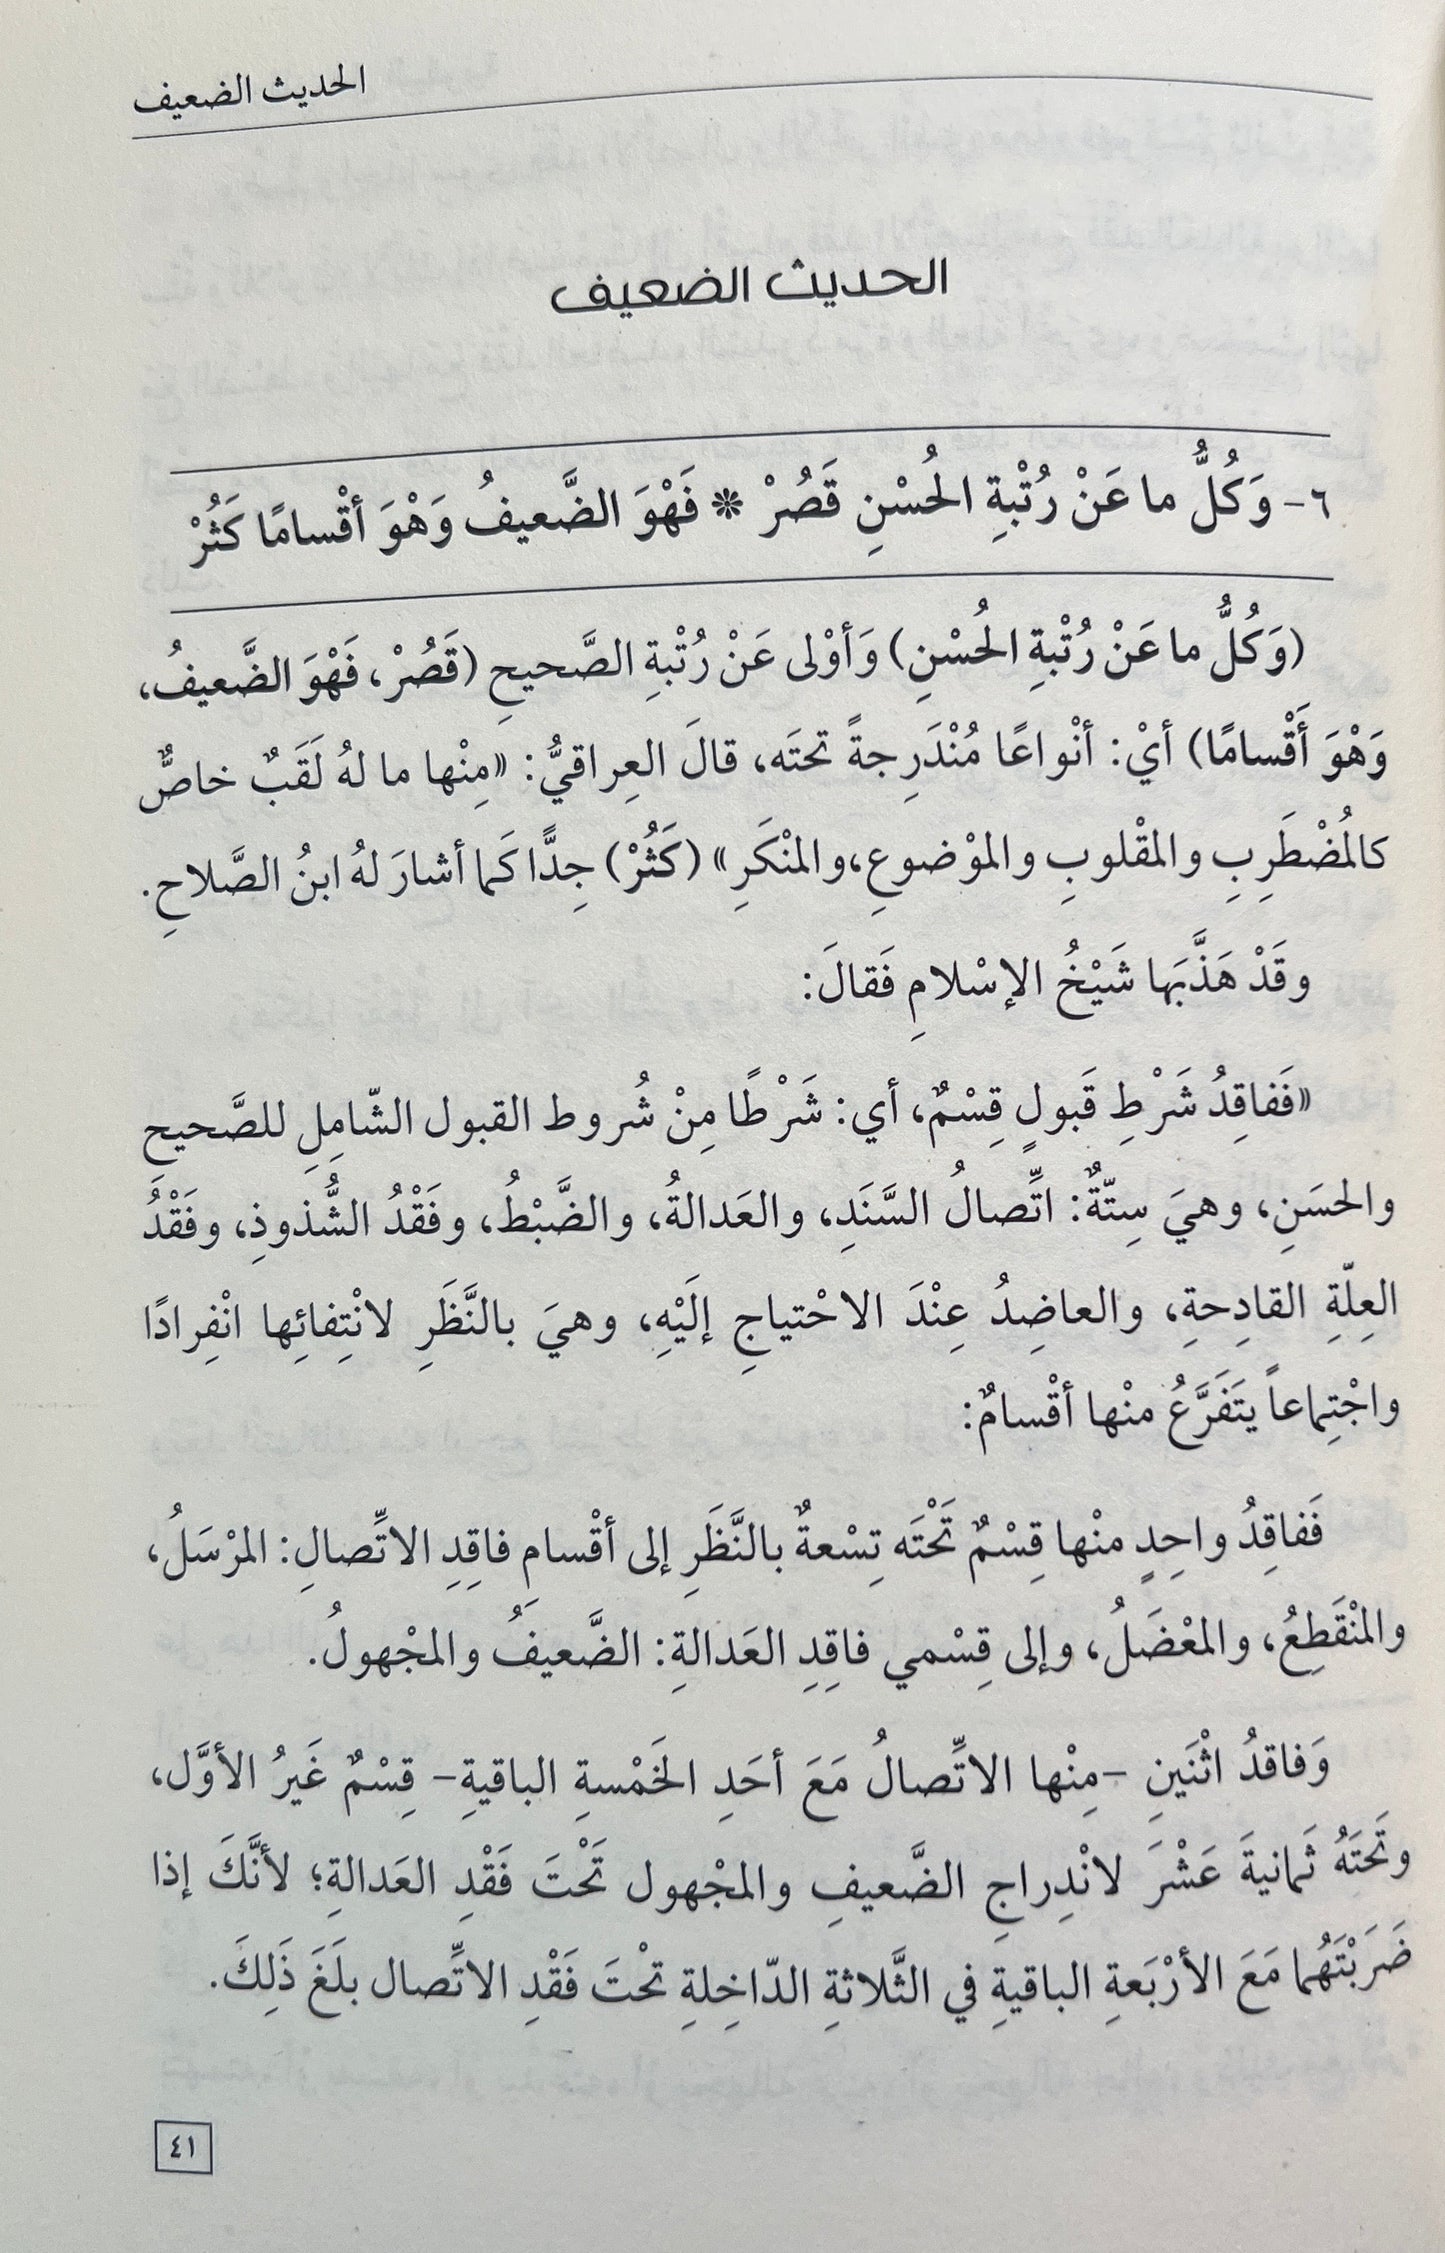 الحديث الضعيف
الحديث الضعيف
٦- وَكُلُّ ما عَنْ رُتْبةِ الحُسْنِ قَصُرْ * فَهْوَ الضَّعيفُ وَهْوَ أقْسامًا كَثُرْ
(وَكُلُّ ما عَنْ رُتْبةِ الحُسْنِ) وَأوْلى عَنْ رُتْبةِ الصَّحيحِ (قَصُرْ، فَهْوَ الضَّعيفُ،
وَهْوَ أَقْسامًا) أيْ: أنْواعًا مُنْدَرِجةً تحتَه، قالَ العِراقيُّ: «مِنْها ما لهُ لَقَبٌ خاصٌّ
كالمُضْطَرِبِ والمقْلوبِ والموْضوعِ،والمنْكَرِ» (كَثُرْ) جِدًّا كَما أشارَ لهُ ابنُ الصَّلاحِ.
وقَدْ هَذَّبَها شَيْخُ الإسْلامِ فَقالَ:
«فَفاقِدُ شَرْطِ قَبولٍ قِسْمٌ، أي: شَرْطًا مِنْ شُروط القبول الشّامِلِ للصَّحيحِ
والحسَنِ، وهيَ سِتّةٌ: اتِّصالُ السَّنَدِ، والعَدالةُ، والضَّبْطُ، وفَقْدُ الشُّذوذِ، وفَقْدُ
العِلّةِ القادِحةِ، والعاضِدُ عِنْدَ الاحْتياجِ إلَيْهِ، وهيَ بالنَّظَرِ لانْتِفائِها انْفِرادًا
واجْتِماعاً يتَفَرَّعُ منْها أقْسامٌ:
فَفاقِدُ واحِدٍ منْها قِسْمٌ تَحْتَه تِسْعةٌ بالنَّظَرِ إلى أقْسامِ فاقِدِ الاتِّصالِ: المرْسَلُ،
والمنْقَطِعُ، والمعْضَلُ، وإلى قِسْمي فاقِدِ العَدالةِ: الضَّعيفُ والمجْهولُ.
وَفاقدُ اثْنَينِ -مِنْها الاتِّصالُ مَعَ أحَدِ الخَمْسةِ الباقيةِ- قِسْمٌ غَيرُ الأوَّل،
وتَحتَهُ ثَمانيةَ عَشْرَ لانْدِراجِ الضَّعيفِ والمجْهول تَحْتَ فَقْدِ العَدالةِ؛ لأنَّكَ إذا
ضَرَبْتَهُما مَعَ الأرْبَعةِ الباقيةِ في الثَّلاثةِ الدّاخِلةِ تحْتَ فَقْدِ الاتِّصال بلَغَ ذَلِكَ.
٤١